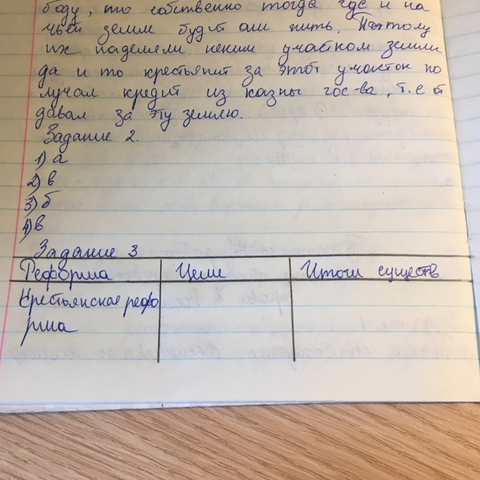 боду, то собственно тогда где и на
чьей земли будут они жить. Поэтому
их наделяли неким участком земли
да и то крестьянин за этот участок по
лучал кредит из казны гос-ва, т.е от
давал за эту землю.
Задание 2.
1) а
2) в
3) б
4) в
Задание 3
Реформа Цели Итоги существ
Крестьянская рефо
рма